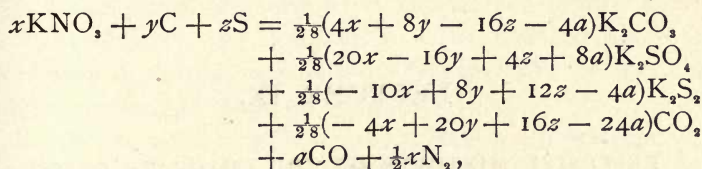 xKNO₃ + yC + zS = 1/28(4x + 8y − 16z − 4a)K₂CO₃
+ 1/28(20x − 16y + 4z + 8a)K₂SO₄
+ 1/28(− 10x + 8y + 12z − 4a)K₂S₂
+ 1/28(− 4x + 20y + 16z − 24a)CO₂
+ aCO + ½xN₂,